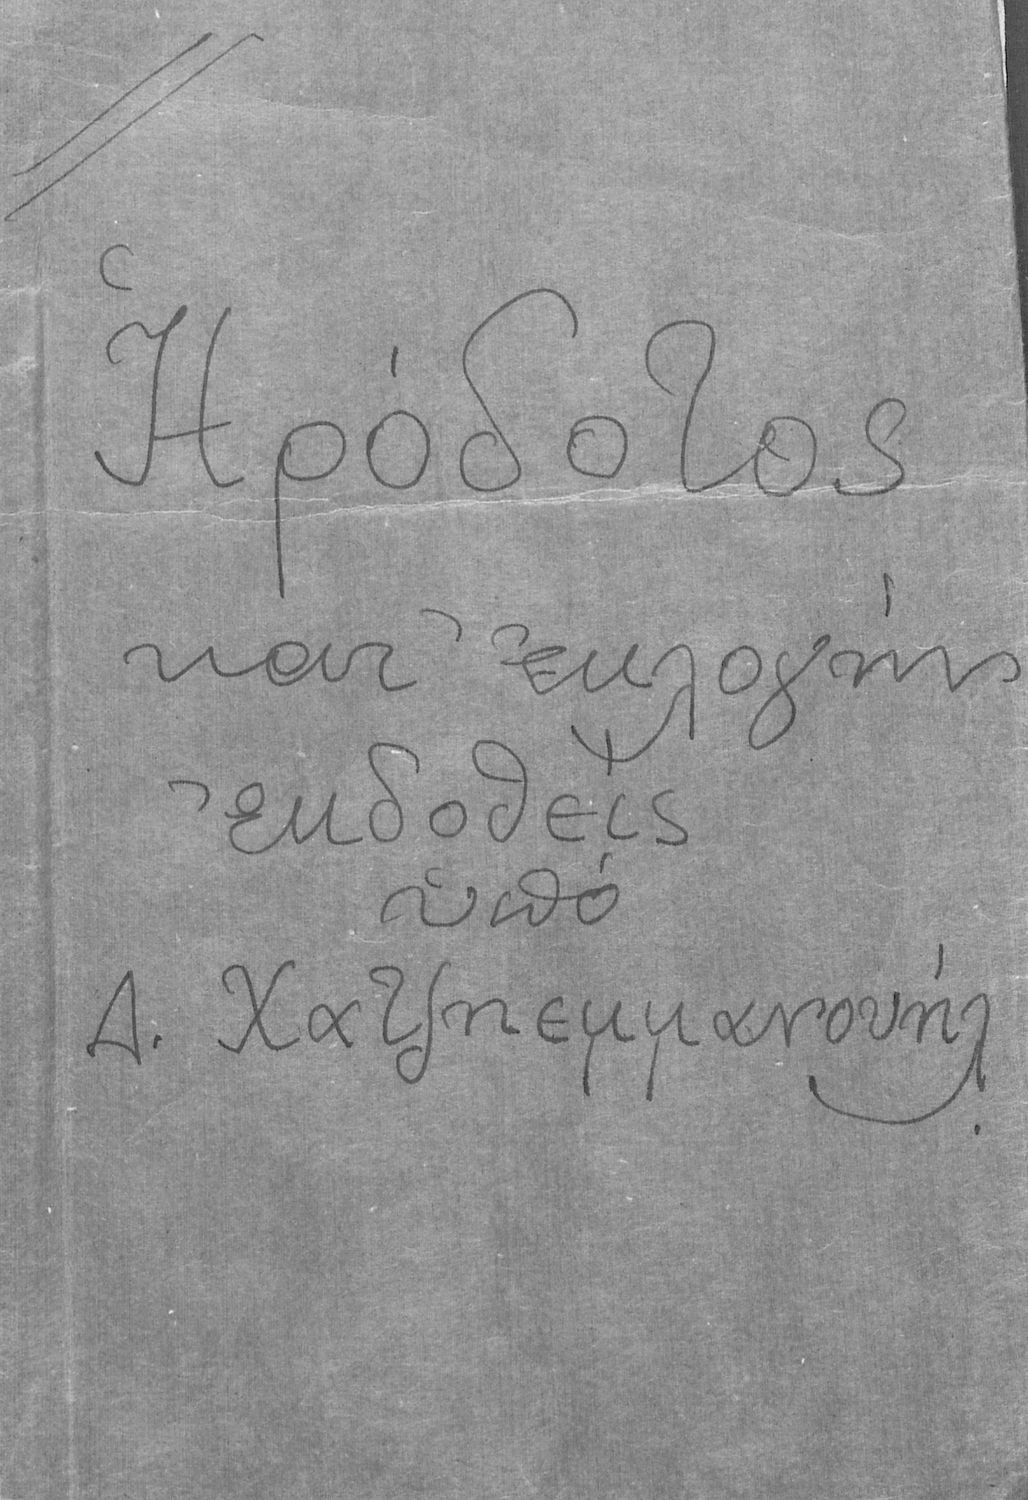 Ἡρόδοτος
κατ᾽ ἐκλογήν
ἐκδοθεὶς
ὑπό
Δ. Χατζηεμμανουήλ.